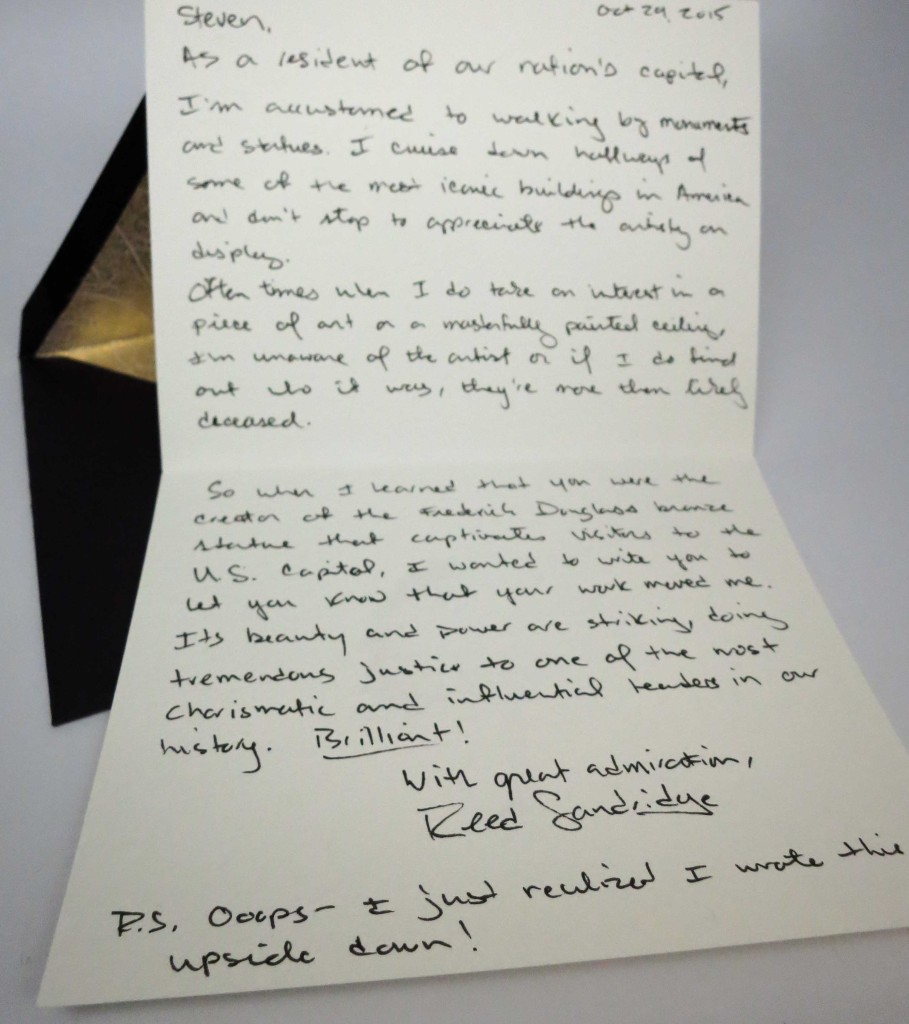 Steven,
Oct 29, 2015
As a resident of our nation's capitol,
I'm accustomed to walking by monuments
and statues. I cruise down hallways of
some of the most iconic buildings in America
and don't stop to appreciate the artistry on
display.
Often times when I do take an interest in a
piece of art or a masterfully painted ceiling,
I'm unaware of the artist or if I do find
out who it was, they're more than likely
deceased.
So when I learned that you were the
creator of the Frederick Douglass bronze
statue that captivates visitors to the
U.S. Capitol, I wanted to write you to
let you know that your work moved me.
Its beauty and power are striking, doing
tremendous justice to one of the most
charismatic and influential leaders in our
history. Brilliant!
With great admiration,
Reed Sandridge
P.S. Ooops- I just realized I wrote this
upside down!